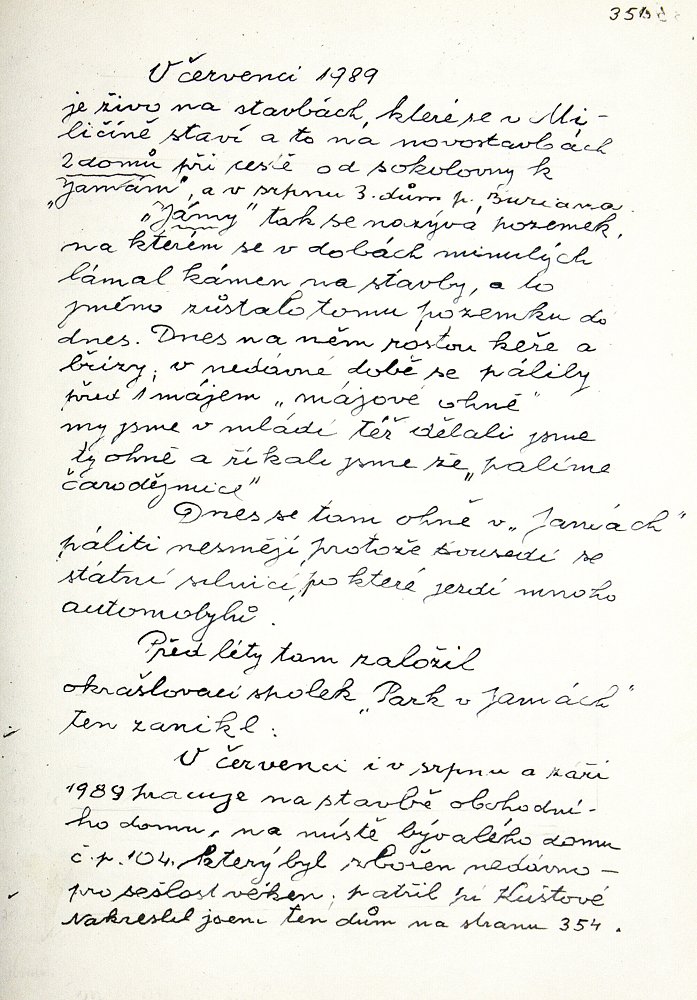 351
V červenci 1989
je živo na stavbách, které se v Mi-
ličíně staví a to na novostavbách
2 domů při cestě od sokolovny k
"Jamám", a v srpnu 3. dům p. Buriana.
"Jámy" tak se nazývá pozemek,
na kterém se v dobách minulých
lámal kámen na stavby, a to
jméno zůstalo tomu pozemku do
dnes. Dnes na něm rostou keře a
břízy, v nedávné době se pálily
před 1 májem "májové ohně"
my jsme v mládí též dělali jsme
ty ohně a říkali jsme že "pálíme
čarodějnice"
Dnes se tam ohně v "Jamách"
páliti nesmějí protože sousedí se
státní silnicí, po které jezdí mnoho
automobylů.
Před léty tam založil
okrašlovací spolek "Park v Jamách"
ten zanikl.
V červenci i v srpnu a září
1989 pracuje na stavbě obchodní-
ho domu, na místě bývalého domu
č.p. 104. který byl zbořen nedávno-
pro sešlost věkem, patřil pí Kuštové
Nakreslil jsem ten dům na stranu 354.